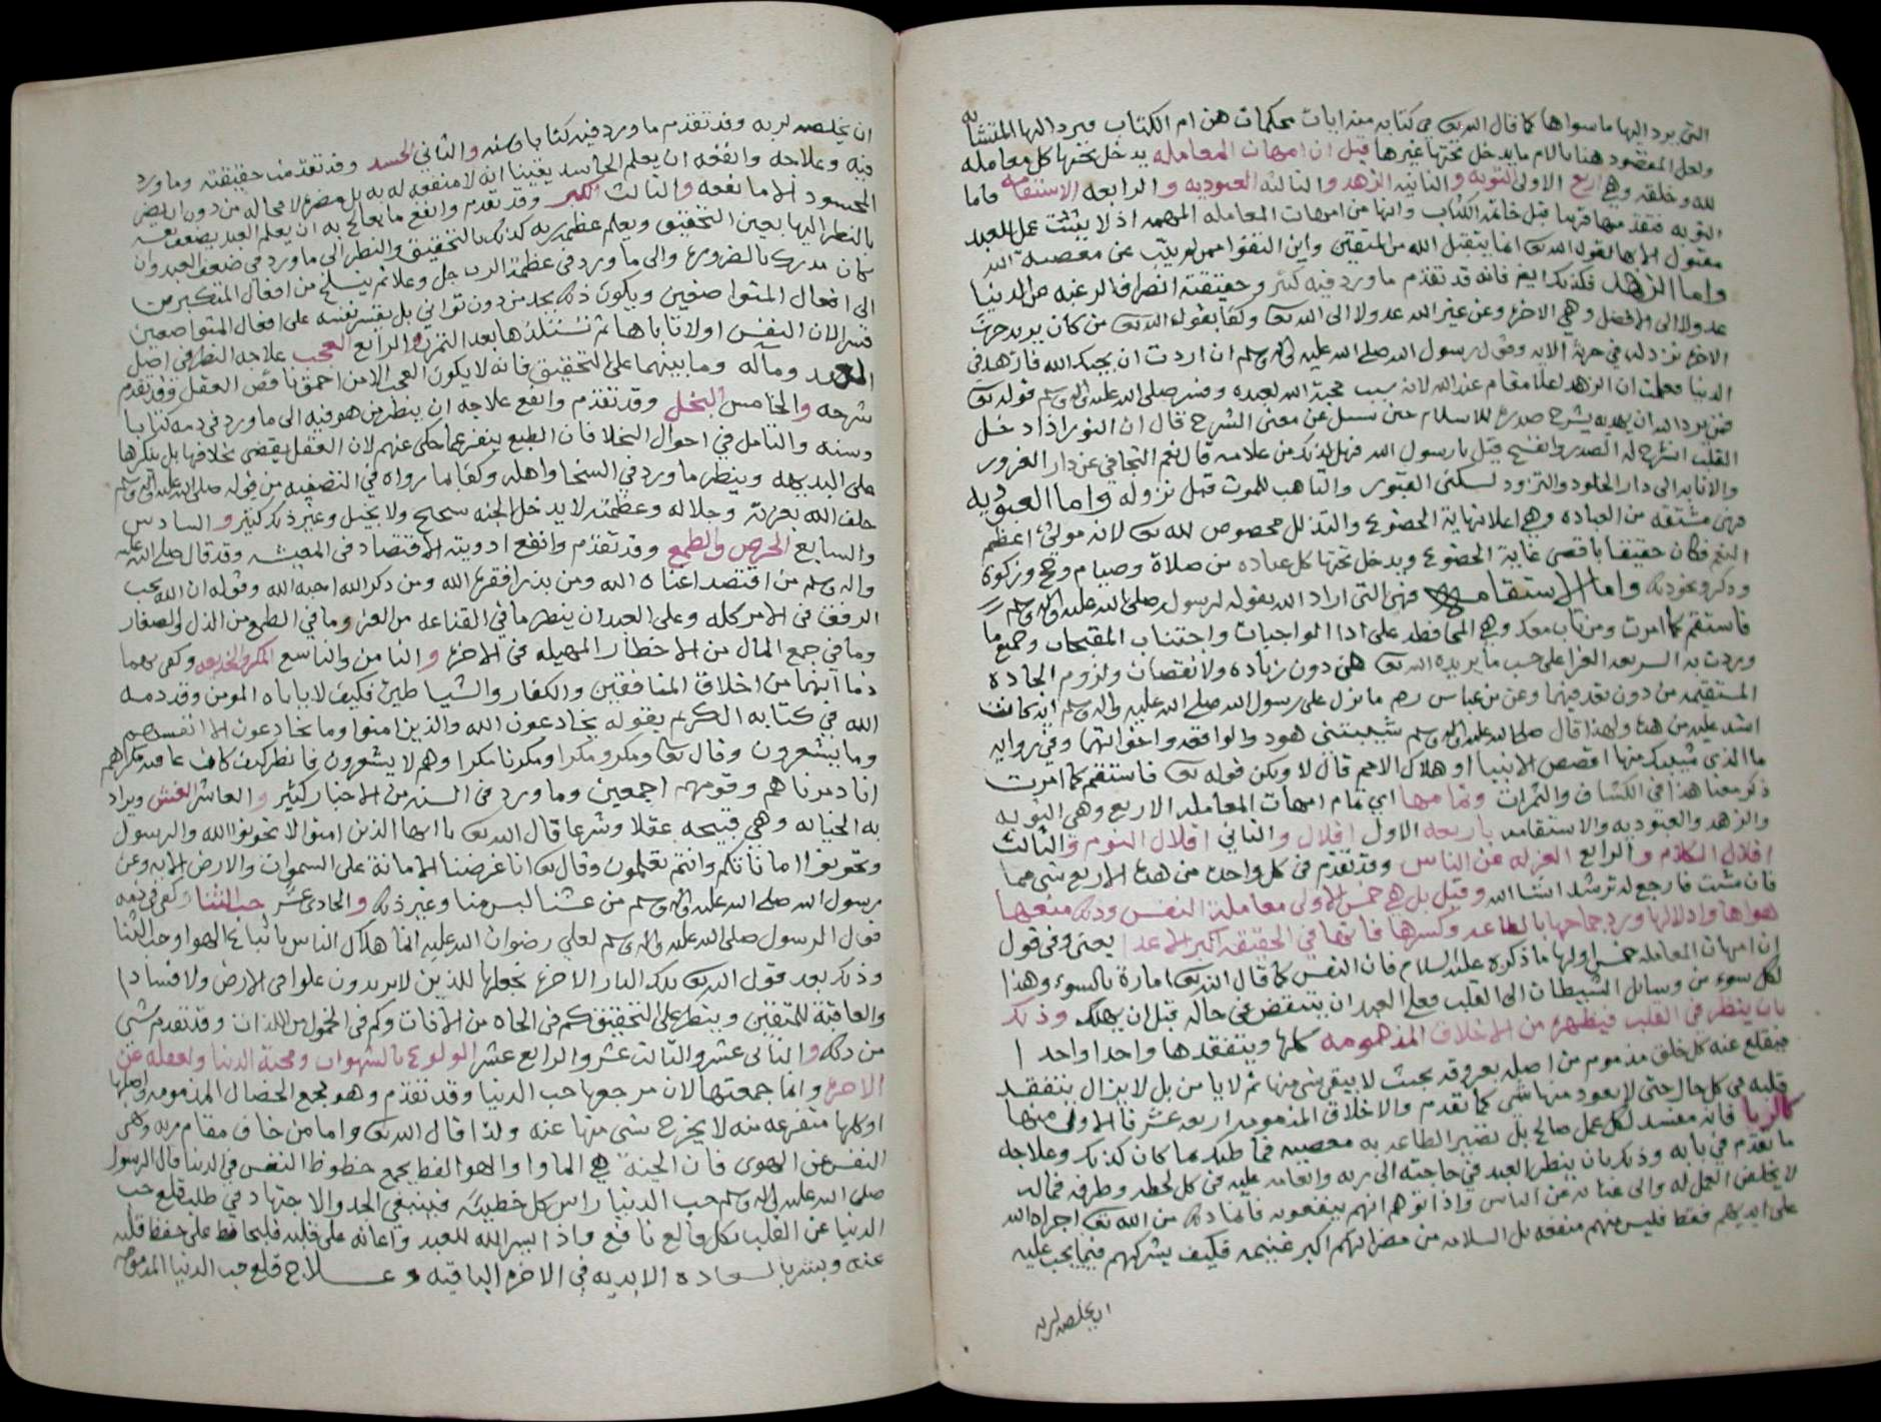 التي يرد اليها ما سواها كما قال الله تعالى في كتابه منه ايات محكمات هن ام الكتاب فيرد اليها المتشابه
ولعل المقصود هنا بالام ما يدخل تحتها غيرها قيل ان امهات المعامله يدخل تحتها كل معامله
لله وخلقه وهي اربع الاولى التوبه والثانيه الزهد والثالثه العبوديه والرابعه الاستقامه فاما
التوبه فقد مر قبل خاتمة الكتاب وانها من امهات المعامله المهمه اذ لا يثبت عمل للعبد
مقبول الا بها لقوله الله تعالى انما يتقبل الله من المتقين واين التقوا ممن لم يتب عن معصية الله
واما الزهد فكذلك ايضا فانه قد تقدم ما ورد فيه كثير وحقيقته انصراف الرغبه عن الدنيا
عدولا الى الافضل وهي الاخرة وعن غير الله عدولا الى الله تعالى وكفا بقوله الله تعالى من كان يريد حرث
الاخرة نزد له في حرثه الايه وقول رسول الله صلى الله عليه واله وسلم ان اردت ان يحبك الله فازهد في
الدنيا فعلمت ان الزهد اعلا مقام عند الله لانه سبب محبة الله لعبده وفسر صلى الله عليه واله وسلم قوله تعالى
فمن يرد الله ان يهديه يشرح صدره للاسلام حين سئل عن معنى الشرح قال ان النور اذا دخل
القلب انشرح له الصدر وانفسح قيل يا رسول الله فهل لذلك من علامه قال نعم التجافي عن دار الغرور
والانابه الى دار الخلود والتزود لسكنى القبور والتاهب للموت قبل نزوله واما العبوديه
فهي مشتقه من العباده وهي اعلا نهاية الخضوع والتذلل مخصوص لله تعالى لانه مولى اعظم
النعم فكان حقيقا باقصى غاية الخضوع ويدخل تحتها كل عباده من صلاة وصيام وحج وزكوة
وذكر ونحو ذلك واما الاستقامه فهي التي اراد الله بقوله لرسوله صلى الله عليه واله وسلم
فاستقم كما امرت ومن تاب معك وهي المحافظه على ادا الواجبات واجتناب المقبحات وجميع ما
وردت به الشريعه الغرا على حسب ما يريده الله تعالى من دون زياده ولا نقصان ولزوم الجاده
المستقيمه من دون تعد فيها وعن بن عباس رحمه ما نزل على رسول الله صلى الله عليه واله وسلم ايه كانت
اشد عليه من هذه ولهذا قال صلى الله عليه واله وسلم شيبتني هود والواقعه واخواتها وفي روايه
ما الذي شيبك منها اقصص الانبيا او هلاك الامم قال لا ولكن قوله تعالى فاستقم كما امرت
ذكر معنا هذا في الكشاف والثمرات وتمامها اي تمام امهات المعامله الاربع وهي التوبه
والزهد والعبوديه والاستقامه باربعه الاول اقلال والثاني اقلال النوم والثالث
اقلال الكلام والرابع العزله عن الناس وقد تقدم في كل واحده من هذه الاربع شي مما
فان شئت فارجع له ترشد انشا الله وقيل بل هي خمس الاولى معاملة النفس وذلك منعها
هواها واذلالها ورد جماحها بالطاعه وكسرها فانها في الحقيقه اكبر الاعدا يعني وفي قول
ان امهات المعامله خمس اولها ما ذكره عليه السلام فان النفس كما قال الله تعالى امارة بالسوء وهذا
لكل سوء من وسائل الشيطان الى القلب فعلى العبد ان يتنقص في حاله قبل ان يهلك وذلك
بان ينظر في القلب فيطهره من الاخلاق المذمومه كلها ويتفقدها واحدا واحدا
فيقلع عنه كل خلق مذموم من اصله بعروقه بحيث لا يبقى شي منها ثم لا يامن بل لا يزال يتفقد
قلبه في كل حال حتى لا يعود منها شي كما تقدم والاخلاق المذمومه اربعه عشر فالاولى منها
كالريا فانه مفسد لكل عمل صالح بل تصير الطاعه به معصيه كذلك وعلاجه
ما تقدم في بابه وذلك بان ينظر العبد في حاجته الى ربه وانعامه عليه في كل لحظه وطرفه
لا يخلص العمل له والى غناه عن الناس واذا توهم انهم ينفعونه فانما ذلك من الله تعالى اجراه الله
على ايديهم فقط فليس منهم منفعه بل السلامه من مضراتهم اكبر غنيمه فكيف يشركهم فيما يجب عليه
ان يخلصه لربه
ان يخلصه لربه وقد تقدم ما ورد فيه كتابا وسنه والثاني الحسد وقد تقدمت حقيقته وما ورد
فيه وعلاجه وانفعه ان يعلم الحاسد يقينا انه لا منفعه له به بل مضره لا محاله من دون ان يضر
المحسود الا ما نفعه والثالث الكبر وقد تقدم وانفع ما يعالج به ان يعلم العبد بضعف نفسه
بالنظر اليها بعين التحقيق ويعلم عظمة ربه كذلك بالتحقيق والنظر الى ما ورد في ضعف العبد وان
كان مدرك بالضروره والى ما ورد في عظمة الرب جل وعلا ثم ينسلخ من افعال المتكبرين
الى افعال المتواضعين ويكون ذلك بجد من دون تواني بل يقسر نفسه على افعال المتواضعين
قسرا لان النفس اولا تاباها ثم تستلذها بعد التمرن والرابع العجب علاجه النظر في اصل
العبد ومآله وما بينهما على التحقيق فانه لا يكون العجب الا من احمق ناقص العقل وقد تقدم
شرحه والخامس البخل وقد تقدم وانفع علاجه ان ينظر من هو فيه الى ما ورد في ذمه كتابا
وسنه والتامل في احوال البخلا فان الطبع ينفر عما حكى عنهم لان العقل يقضي بخلافها بل ينكرها
على البديهه وينظر ما ورد في السخا واهله وكفا بما رواه في التصفيه من قوله صلى الله عليه واله وسلم
حلف الله بعزته وجلاله وعظمته لا يدخل الجنه شحيح ولا بخيل وغير ذلك كثير والسادس
والسابع الحرص والطمع وقد تقدم وانفع ادويته الاقتصاد في المعيشه وقد قال صلى الله عليه
واله وسلم من اقتصد اغناه الله ومن بذر افقره الله ومن ذكر الله احبه الله وقوله ان الله يحب
الرفق في الامر كله وعلى العبد ان ينظر ما في القناعه من العز وما في الطمع من الذل والصغار
وما في جمع المال من الاخطار المهيله في الاخرة والثامن والتاسع المكر والخديعه وكفى بهما
ذما انهما من اخلاق المنافقين والكفار والشياطين فكيف لا ياباه المومن وقد ذمه
الله في كتابه الكريم بقوله يخادعون الله والذين امنوا وما يخادعون الا انفسهم
وما يشعرون وقال تعالى ومكروا مكرا ومكرنا مكرا وهم لا يشعرون فانظر كيف كان عاقبة مكرهم
انا دمرناهم وقومهم اجمعين وما ورد في السنه من الاخبار كثير والعاشر الغش ويراد
به الخيانه وهي قبيحه عقلا وشرعا قال الله تعالى يا ايها الذين امنوا لا تخونوا الله والرسول
وتخونوا اماناتكم وانتم تعلمون وقال تعالى انا عرضنا الامانة على السموات والارض الايه وعن
رسول الله صلى الله عليه واله وسلم من غشنا ليس منا وغير ذلك والحادي عشر حب الثنا وكفى في ذمه
قول الرسول صلى الله عليه واله وسلم لعلي رضوان الله عليه انما هلاك الناس باتباع الهوا وحب الثنا
وذلك بعد قول الله تعالى تلك الدار الاخرة نجعلها للذين لا يريدون علوا في الارض ولا فسادا
والعاقبة للمتقين وينظر على التحقيق كم في الجاه من الافات وكم في الخمول من اللذات وقد تقدم شي
من ذلك والثاني عشر والثالث عشر والرابع عشر الولوع بالشهوات ومحبة الدنيا والغفله عن
الاخرة وانما جمعتها لان مرجعها حب الدنيا وقد تقدم وهو مجمع الخصال المذمومه واصلها
او كلها متفرعه منه لا يخرج شي منها عنه ولذا قال الله تعالى واما من خاف مقام ربه ونهى
النفس عن الهوى فان الجنة هي الماوا والهوا لفظ يجمع حظوظ النفس في الدنيا قال الرسول
صلى الله عليه واله وسلم حب الدنيا راس كل خطيئه فينبغي الجد والاجتهاد في طلب قلع حب
الدنيا عن القلب بكل قالع نافع واذا يسر الله للعبد واعانه على قلبه فليحافظ على حفظ قلبه
عنه ويبشر بالسعاده الابديه في الاخرة الباقيه وعلاج قلع حب الدنيا المذمومه